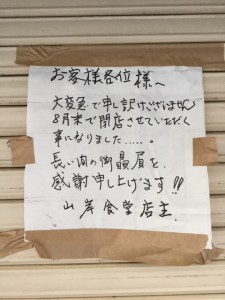 お客様各位様へ
大変急で申し訳けございません
8月末で閉店させていただく
事になりました.....。
長い間の御贔屓を、
感謝申し上げます!!!
山岸食堂店主.